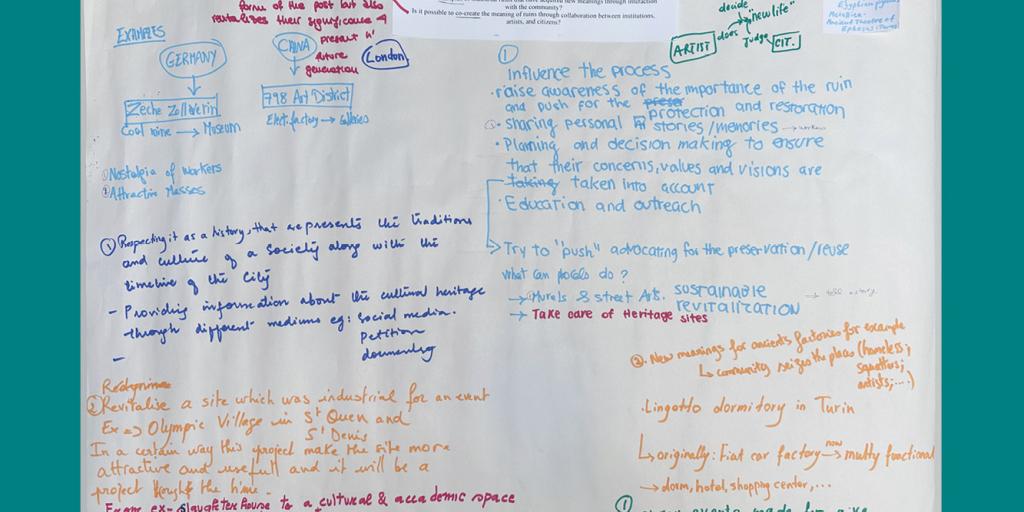 form of the past but also
revitalises their significance 4
present n'
future
generation
London
with the community?
Is it possible to co-create the meaning of ruins through collaboration between institutions,
artists, and citizens?
decide
"new life"
does
judge
ARTIST
CIT.
EXAMPLES
GERMANY
Zeche Zollverin
Coal mine → Museum
CHINA
798 Art District
Elect. factory → Galleries
① Nostalgia of workers
② Attractive Masses
① Respecting it as a history, that represents the traditions
and culture of a society along with the
timeline of the city
- Providing information about the cultural heritage
through different mediums eg: social media.
petition
documenting
-
②Revitalise a site which was industrial for an event
Ex => Olympic Village in St Ouen and
St Denis
In a certain way this project make the site more
attractive and usefull and it will be a
project the time.
From ex-slaughter house to a cultural & accademic space
①
Influence the process
• raise awareness of the importance of the ruin
and push for the preser protection and restoration
• sharing personal stories/memories
• Planning and decision making to ensure
that their concerns, values and visions are
taking taken into account
• Education and outreach
→ Try to "push" advocating for the preservation/reuse
What can people do?
→ Murals & street Art. sustainable
revitalization
→ Take care of Heritage sites
②. New meanings for ancients factories for example
↳ community seizes the place (homeless;
squatters;
artists;...)
• Lingotto dormitory in Turin
↳ originally: Fiat car factory now→ multy functional
→ dorm, hotel, shopping center,...
①